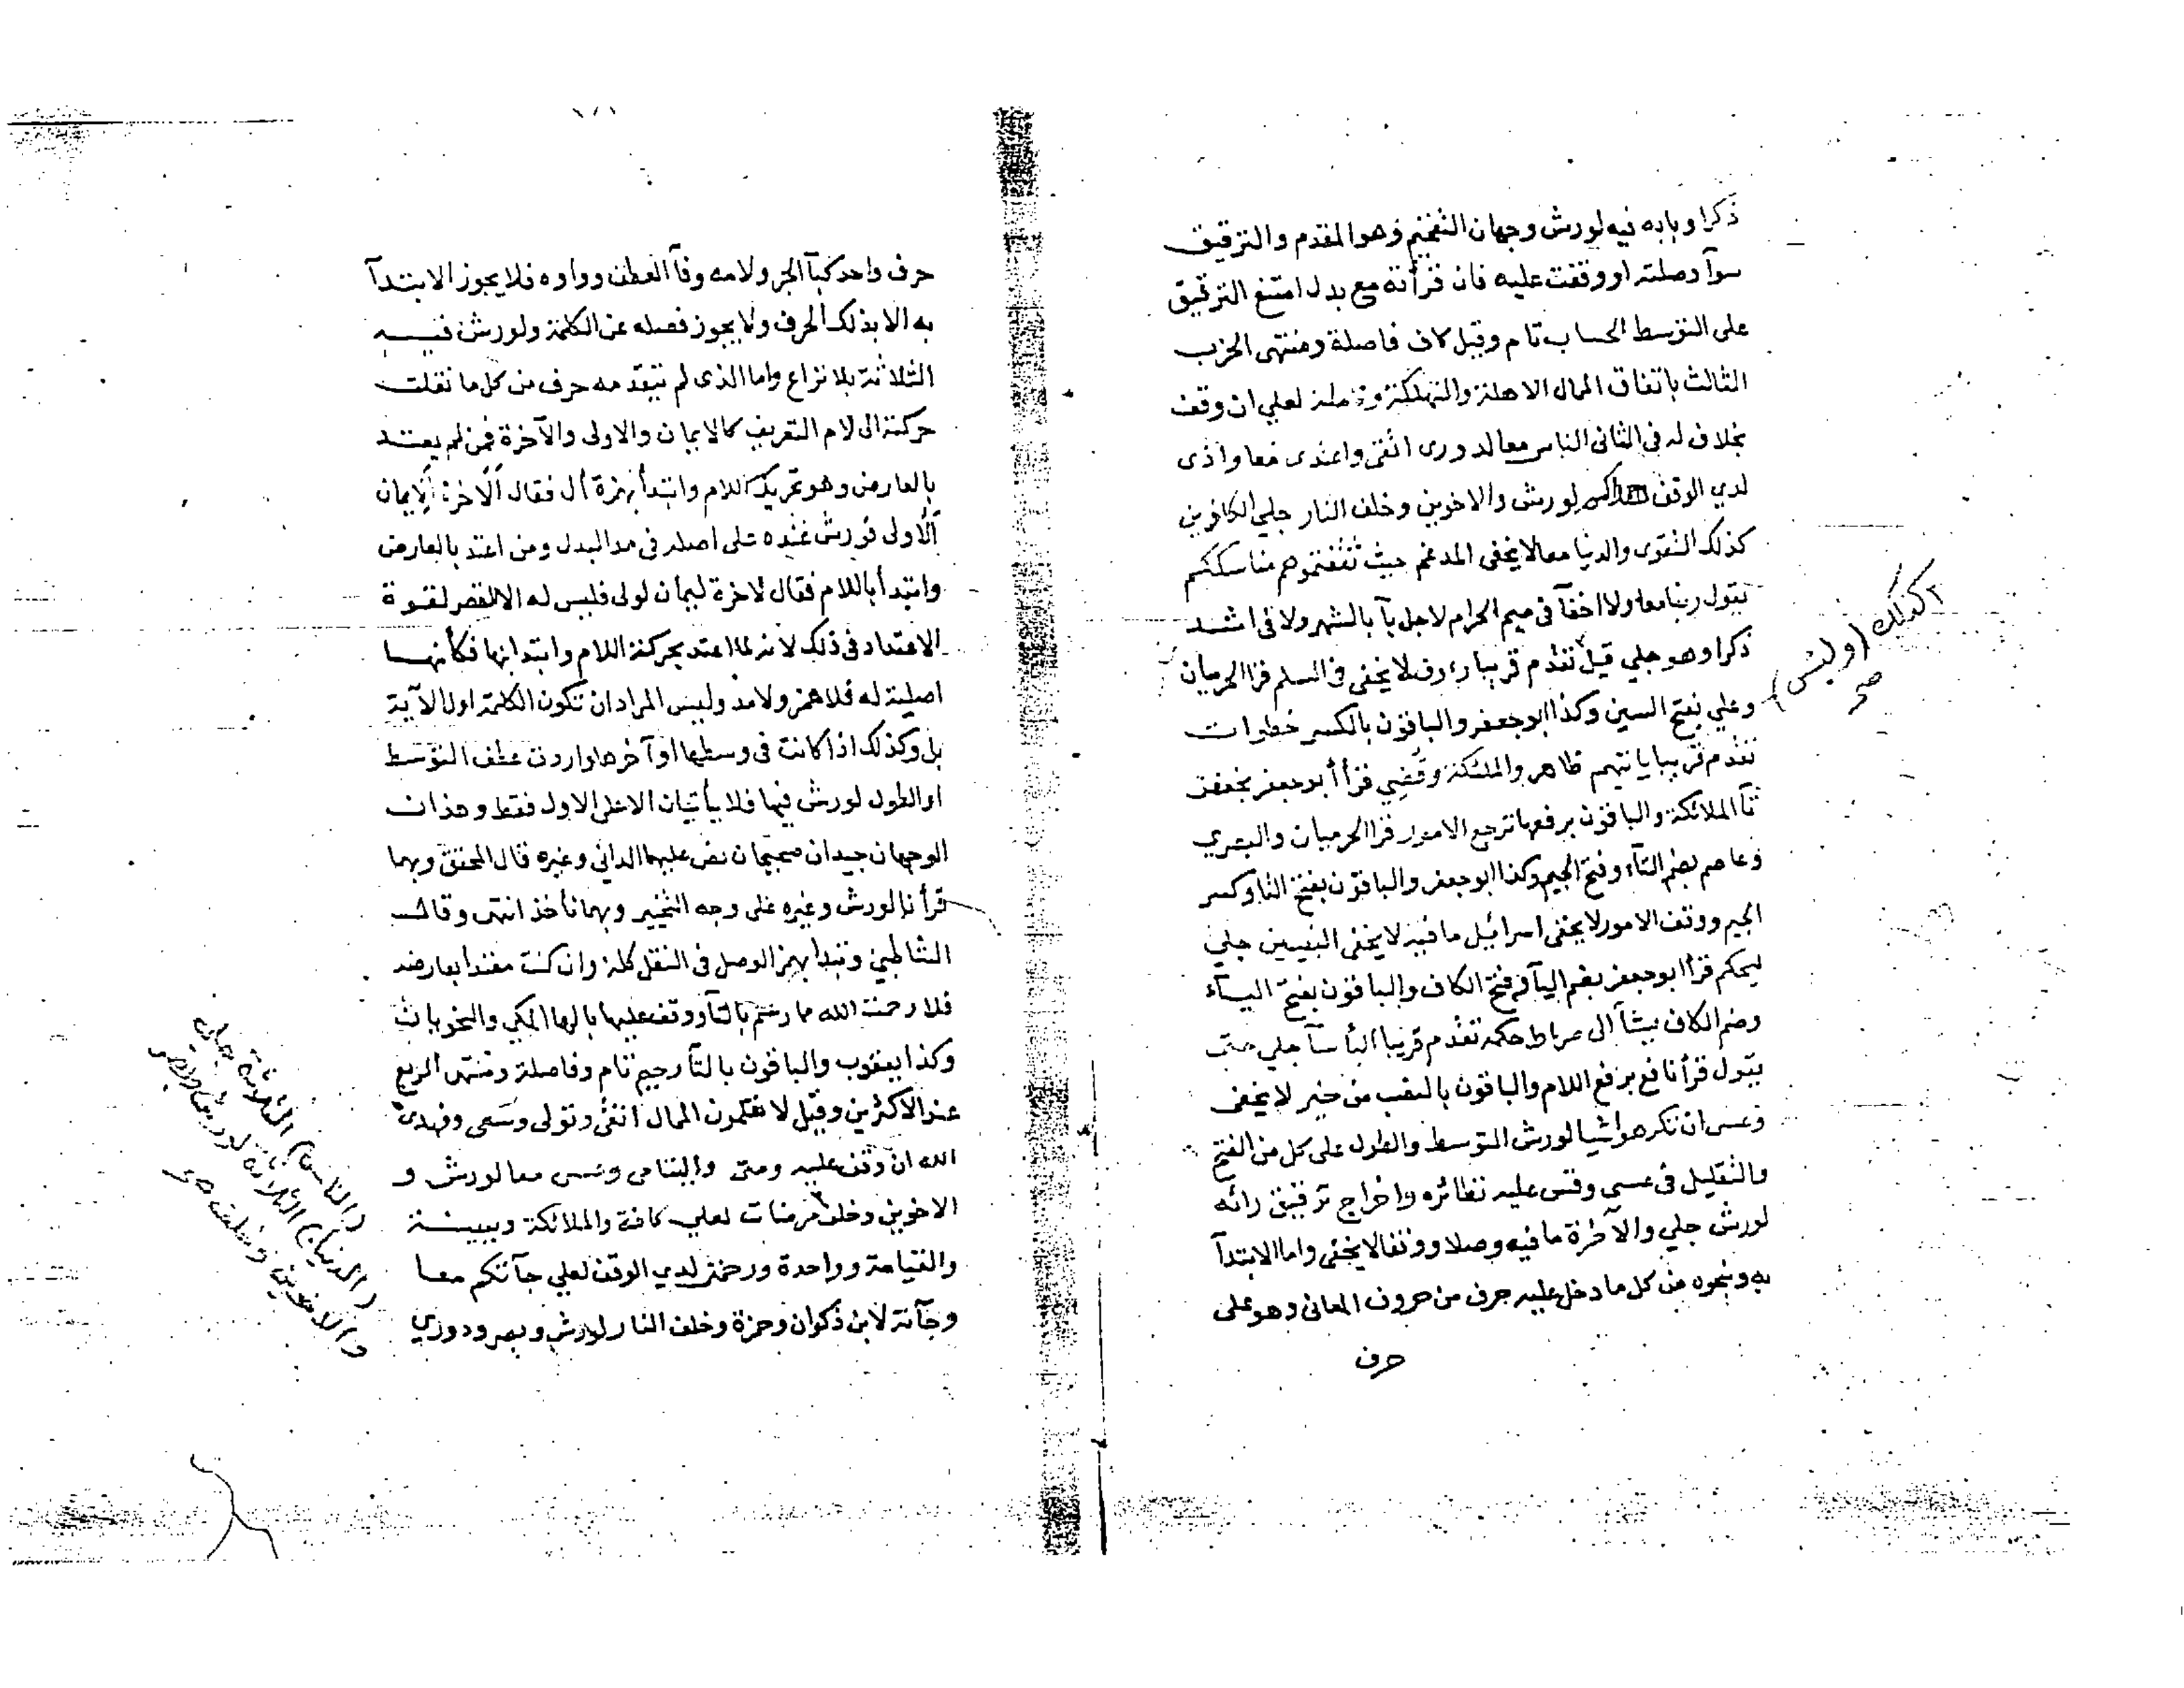 ذكرا وبابه فيه لورش وجهان التفخيم وهو المقدم والترقيق
سوآ وصلته او وقفت عليه فان قرأته مع بدل امتنع الترقيق
على التوسط الحساب تام وقيل كاف فاصلة ومنتهى الحزب
الثالث باتفاق الممال الاهلة والتهلكة و كاملة لعلي ان وقف
بخلاف له في الثاني الناس معا لدوري اتقى واعتدى معا واذى
لدي الوقف لورش والاخوين وخلف النار جلي الكافرين
كذلك التقوى والدنيا معا لا يخفى المدغم حيث ثقفتموهم مناسككم
يقول ربنا معا ولا اخفآ في ميم الحرام لاجل بآ بالشهر ولا في اشد
ذكرا وهو جلي قيل تقدم قريبا رءوف لا يخفى في السلم قرا الحرميان
وعلي بفتح السين وكذا ابو جعفر والباقون بالكسر خطوات
تقدم قريبا يأتيهم ظاهر والملئكة وقضي قرأ أبو جعفر بخفض
تآ الملائكة والباقون برفعها ترجع الامور قرا الحرميان والبصري
وعاصم بضم التآء وفتح الجيم وكذا ابو جعفر والباقون بفتح التا وكسر
الجيم ووقف الامور لا يخفى اسرائيل ما فيه لا يخفى النبيين جلي
ليحكم قرأ ابو جعفر بضم اليآ وفتح الكاف والباقون بفتح اليــآء
وضم الكاف يشآ الى صراط حكمه تقدم قريبا البأسآ جلي حتى
يقول قرأ نافع برفع اللام والباقون بالنصب من خير لا يخفى
وعسى ان تكرهوا شيا لورش التوسط والطول على كل من الفتح
والتقليل في عسى وقس عليه نظائره واخراج ترقيق رائه
لورش جلي والآخرة ما فيه وصلا ووقفا لا يخفى واما الابتدآ
به ونحوه من كل ما دخل عليه حرف من حروف المعاني وهو على
حرف
كذلك (ولبئس)
صح
حرف واحد كبآ الجر ولامه وفآ العطف وواوه فلا يجوز الابتدآ
به الا بذلك الحرف ولا يجوز فصله عن الكلمة ولورش فيــه
الثلاثة بلا نزاع واما الذي لم يتقدمه حرف من كل ما نقلت
حركته الى لام التعريف كالايمان والاولى والآخرة فمن لم يعتــد
بالعارض وهو تحريك اللام وابتدأ بهمزة أل فقال ألاخرة ألايمان
ألاولى فورش عنده على اصله في مد البدل ومن اعتد بالعارض
وابتدأ باللام فقال لاخرة ليمان لولى فليس له الا القصر لقوة
الاعتداد في ذلك لانه لما اعتد بحركة اللام وابتدا بها فكأنهــا
اصلية له فلا همز ولا مد وليس المراد ان تكون الكلمة اول الآية
بل وكذلك اذا كانت في وسطها او آخرها واردت عطف التوسط
او الطول لورش فيها فلا يأتيان الا على الاول فقط وهذان
الوجهان جيدان صحيحان نص عليهما الداني وغيره قال المحقق وبهما
قرأنا لورش وغيره على وجه التخيير وبهما نأخذ انتهى وقال
الشاطبي وتبدا بهمز الوصل في النقل كله وان كنت معتدا بعارضه
فلا رحمت الله مما رسم بالتآ ووقف عليها بالها المكي والنحويان
وكذا يعقوب والباقون بالتآ رحيم تام وفاصلة ومنتهى الربع
عند الاكثرين وقيل لا تعلمون الممال اتقى وتولى وسعى وفهدى
الله ان وقف عليه ومتى واليتامى وعسى معا لورش و
الاخوين وخلف مرضات لعلي كافة والملائكة وبينــة
والقيامة وواحدة ورحمة لدي الوقف لعلي جآتكم معــا
وجآته لابن ذكوان وحمزة وخلف النار لورش وبصر ودوري
(الناس) الثلاثة
(الدنيا) الثلاثة
والاخوين وخلف صح